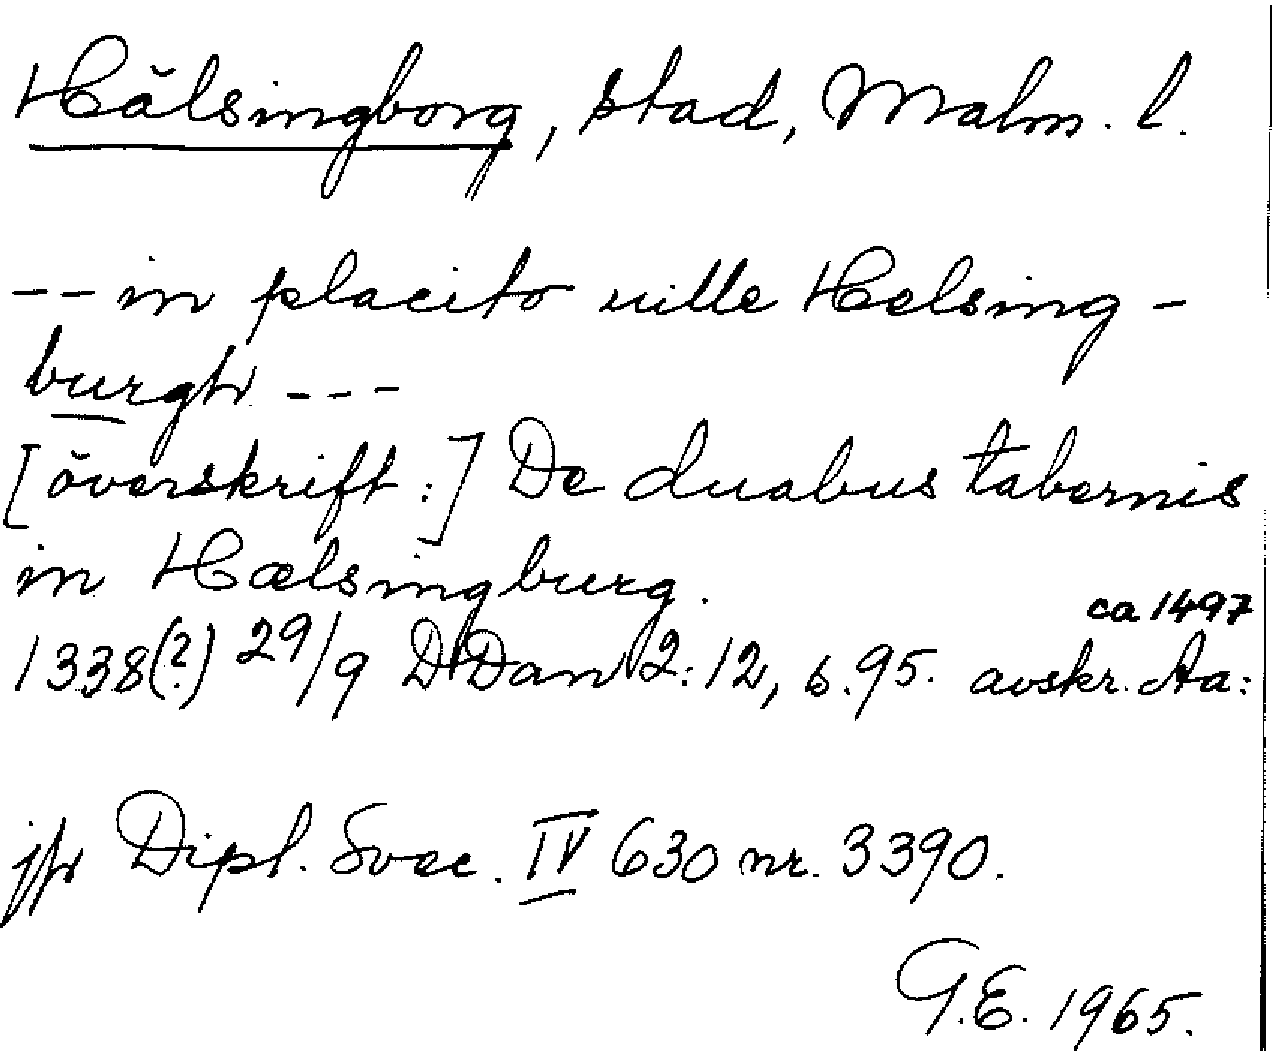 Hälsingborg, stad, Malm. l.
-- in placito uille Helsing-
burgh ---
[överskrift:] De duabus tabernis
in Hælsingburg.
ca 1497
1338(?) 29/9 DDan 2:12, s. 95. avskr. Aa:
jfr Dipl. Svec. IV 630 nr. 3390.
G.E. 1965.